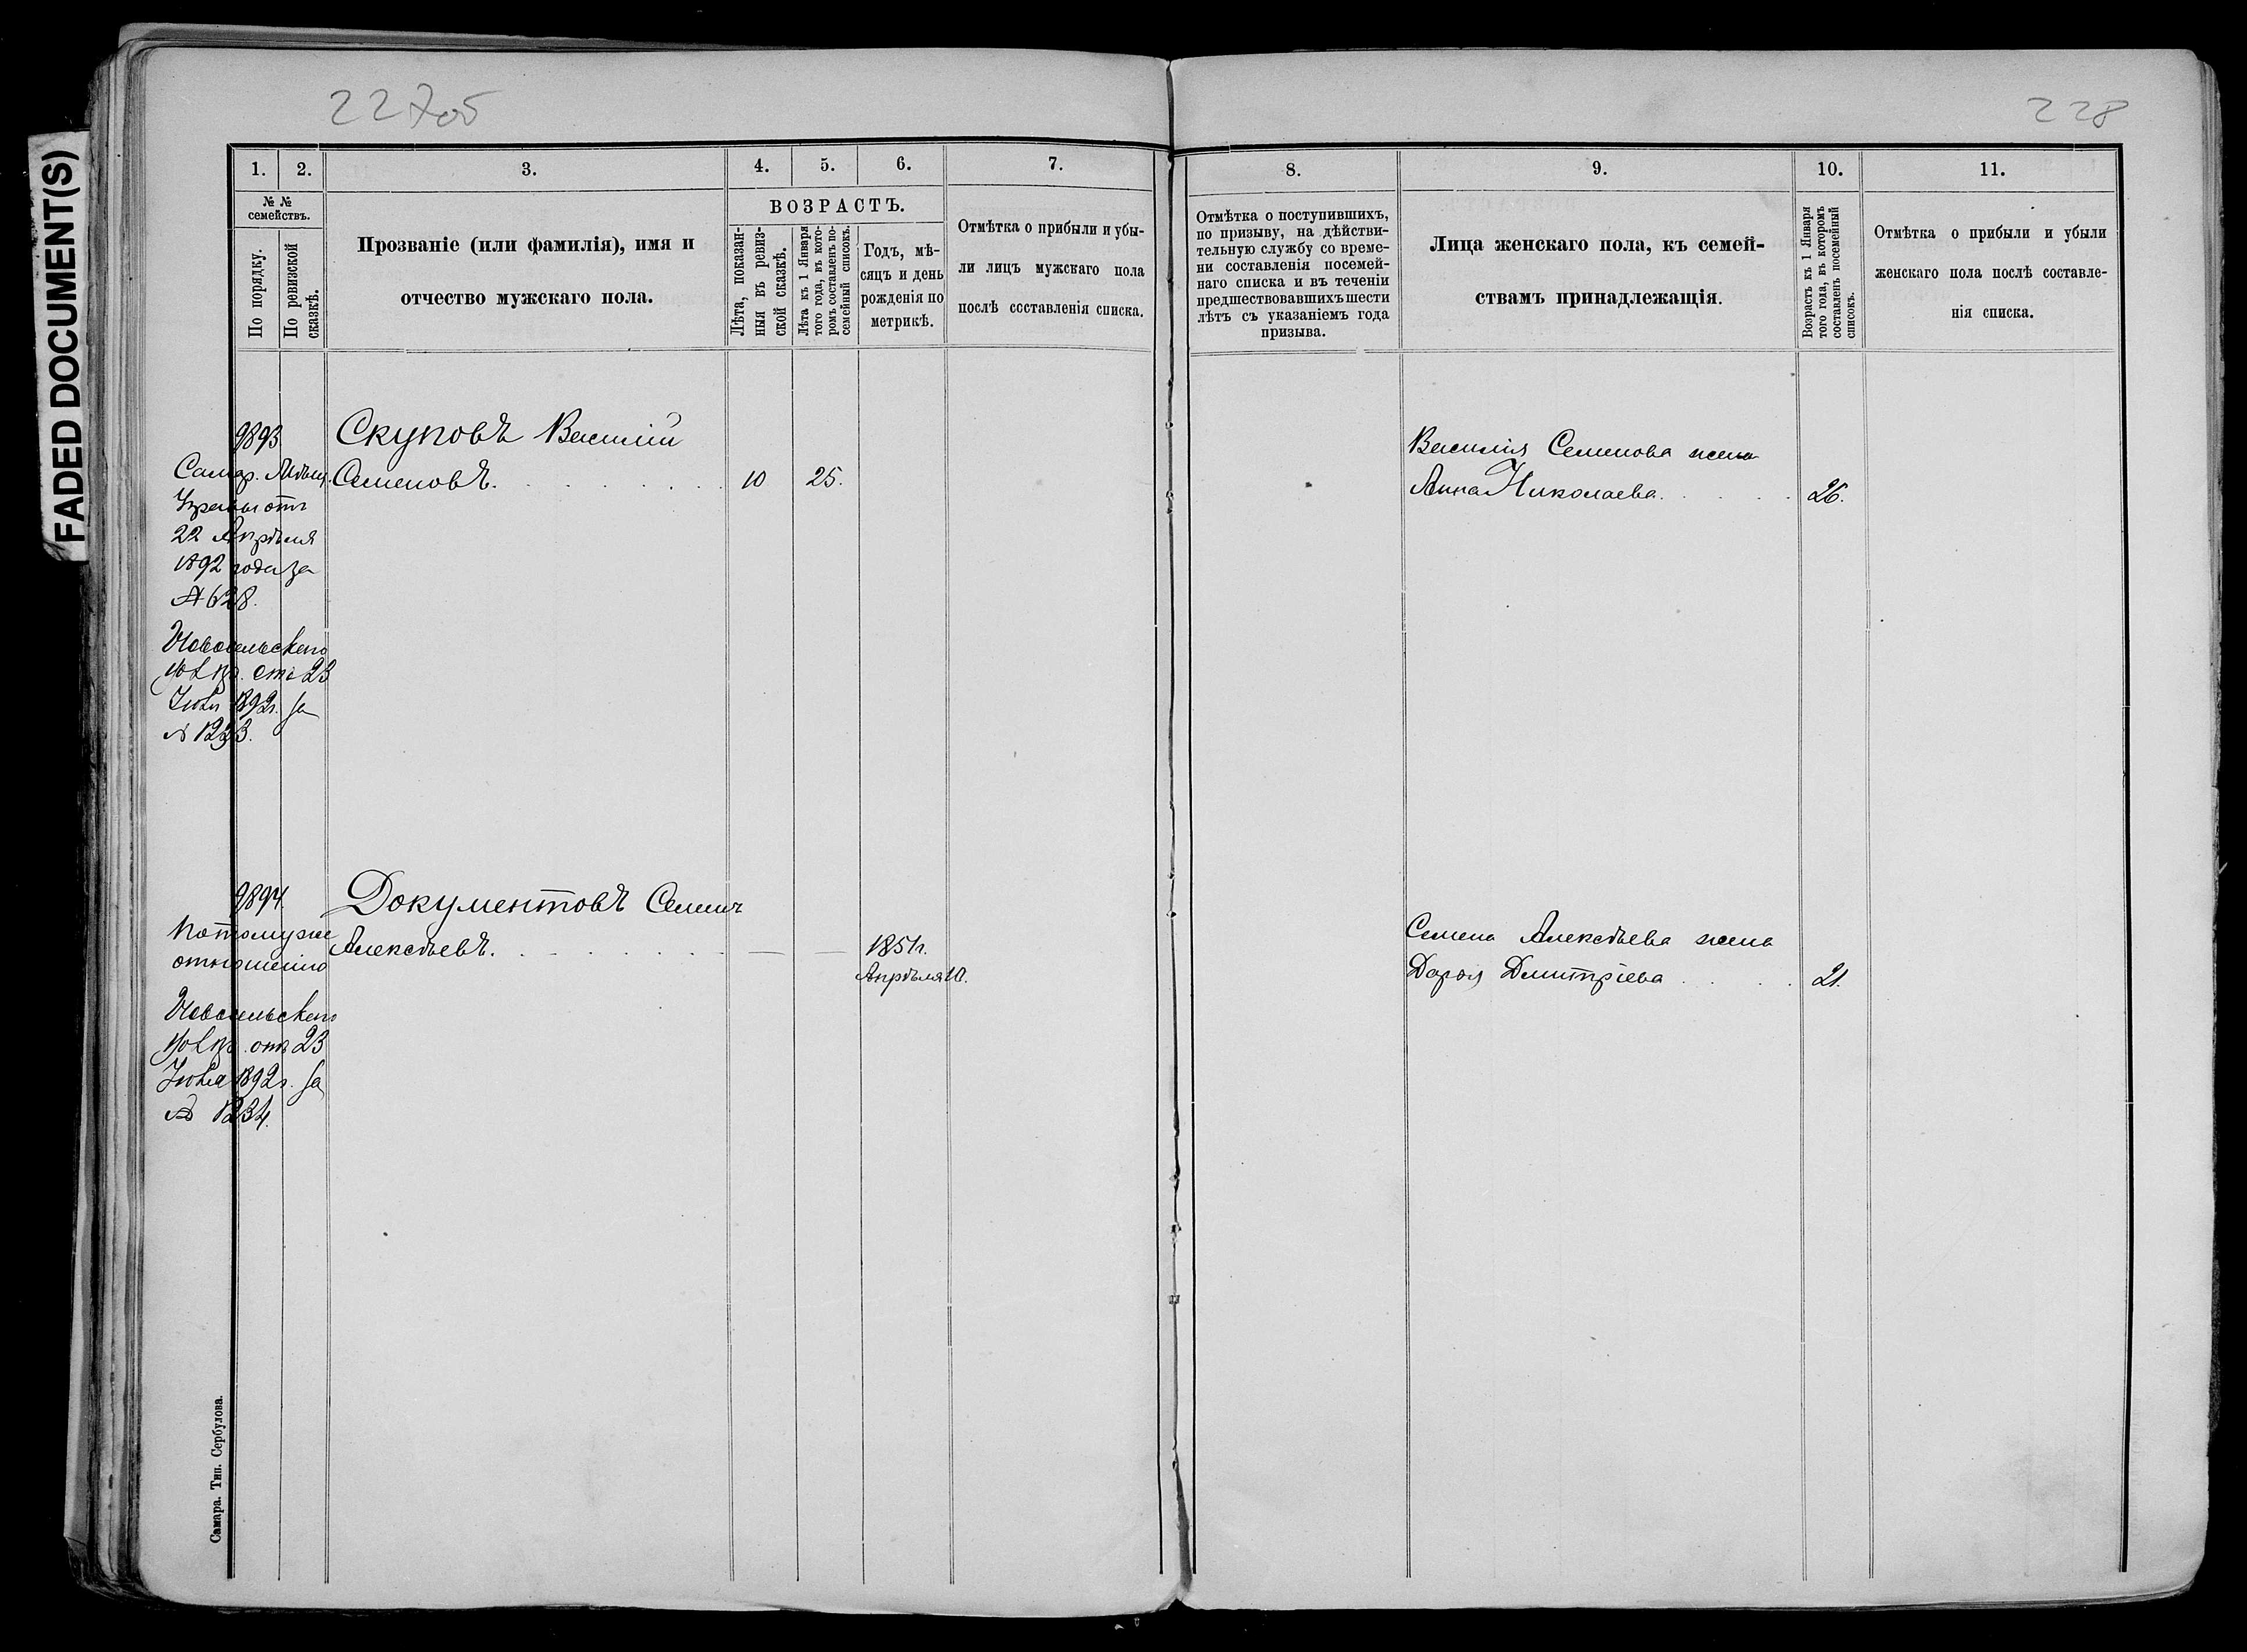 FADED DOCUMENT(S)
227об
228
1. 2. 3. 4. 5. 6. 7.
№ №
семействъ.
По порядку.
По ревизской
сказкѣ.
Прозваніе (или фамилія), имя и
отчество мужскаго пола.
ВОЗРАСТЪ.
Лѣта, показан-
ныя въ ревиз-
ской сказкѣ.
Лѣта къ 1 Января
того года, въ кото-
ромъ составленъ по-
семейный списокъ.
Годъ, мѣ-
сяцъ и день
рожденія по
метрикѣ.
Отмѣтка о прибыли и убы-
ли лицъ мужскаго пола
послѣ составленія списка.
8. 9. 10. 11.
Отмѣтка о поступившихъ,
по призыву, на дѣйстви-
тельную службу со време-
ни составленія посемей-
наго списка и въ теченіи
предшествовавшихъ шести
лѣтъ съ указаніемъ года
призыва.
Лица женскаго пола, къ семей-
ствамъ принадлежащія.
Возрастъ къ 1 Января
того года, въ которомъ
составленъ посемейный
списокъ.
Отмѣтка о прибыли и убыли
женскаго пола послѣ составле-
нія списка.
9893 Скуповъ Василій
Семеновъ. 10 25.
Самар.
22 Апрѣля
1892 года за
№ 628.
Новосельскаго
отъ 23
1892 г. за
№ 1233.
Василія Семенова жена
Анна Николаева. 26.
9894. Документовъ Семенъ
Алексѣевъ. — — 1851 г.
Апрѣля 10.
По тому же
отношенію
Новосельскаго
отъ 23
1892 г. за
№ 1234.
Семена Алексѣева жена
Дарья Дмитріева 21.
Самара. Тип. Сербулова.